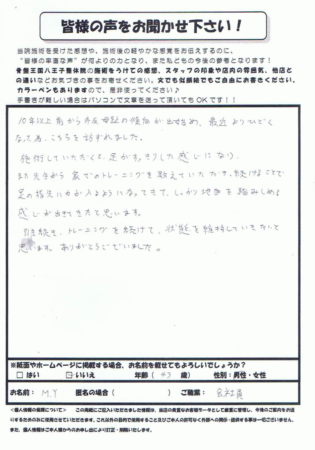 皆様の声をお聞かせ下さい！
当院施術を受けた感想や、施術後の軽やかな感覚をお伝えするのに、
"皆様の率直な声"が何よりの力となり、また私どもの今後の参考となります！
骨盤王国八王子整体院の施術をうけての感想、スタッフの印象や店内の雰囲気、他店と
の違いなどお気づきの事をお寄せください。文でも似顔絵でもご自由にお書きください。
カラーペンもありますので、是非使ってください♪
手書きが難しい場合はパソコンで文章を送って頂いてもOKです！！
10年以上前から外反母趾の傾向が出始め、最近よりひどく
なった為、こちらを訪ずれました。
施術していただくと足がすっきりした感じになり、
また先生から家でのトレーニングを教えていただき、続けることで
足の指先に力が入るようになってきて、しっかり地面を踏みしめる
感じが出てきたと思います。
今後も、トレーニングを続けて、状態を維持していきたいと
思います。ありがとうございました。
※紙面やホームページに掲載する場合、お名前を載せてもよろしいでしょうか？
□ はい ☑ いいえ 年齢（43 歳） 性別：男性・女性
お名前： M.Y 匿名の場合（ ） ご職業： 会社員
＜個人情報の取扱について＞ この用紙にご記入いただきました情報は、当店の貴重なお客様データとして厳重に管理し、今後のご案内をお送
りするためのみに使用させていただきます。これ以外の目的で使用することも及びご本人の許可なく外部への開示・提供する事は一切ございません。
また、個人情報はご本人様からのお申し出により訂正・削除いたします。